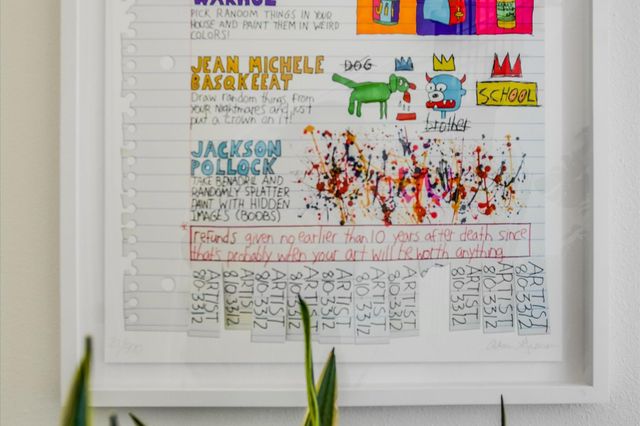 WARHOL
PICK RANDOM THINGS IN YOUR
HOUSE AND PAINT THEM IN WEIRD
COLORS!
JEAN MICHELE
BASQKEEAT
Draw random things from
your nightmares and just
put a crown on it!
DOG
brother
SCHOOL
JACKSON
POLLOCK
TAKE BENADRIL AND
RANDOMLY SPLATTER
PAINT WITH HIDDEN
IMAGES (BOOBS)
*refunds given no earlier than 10 years after death since
that's probably when your art will be worth anything
ARTIST
810-3312
ARTIST
810-3312
ARTIST
810-3312
ARTIST
810-3312
ARTIST
810-3312
ARTIST
810-3312
ARTIST
810-3312
ARTIST
810-3312
ARTIST
810-3312
ARTIST
810-3312